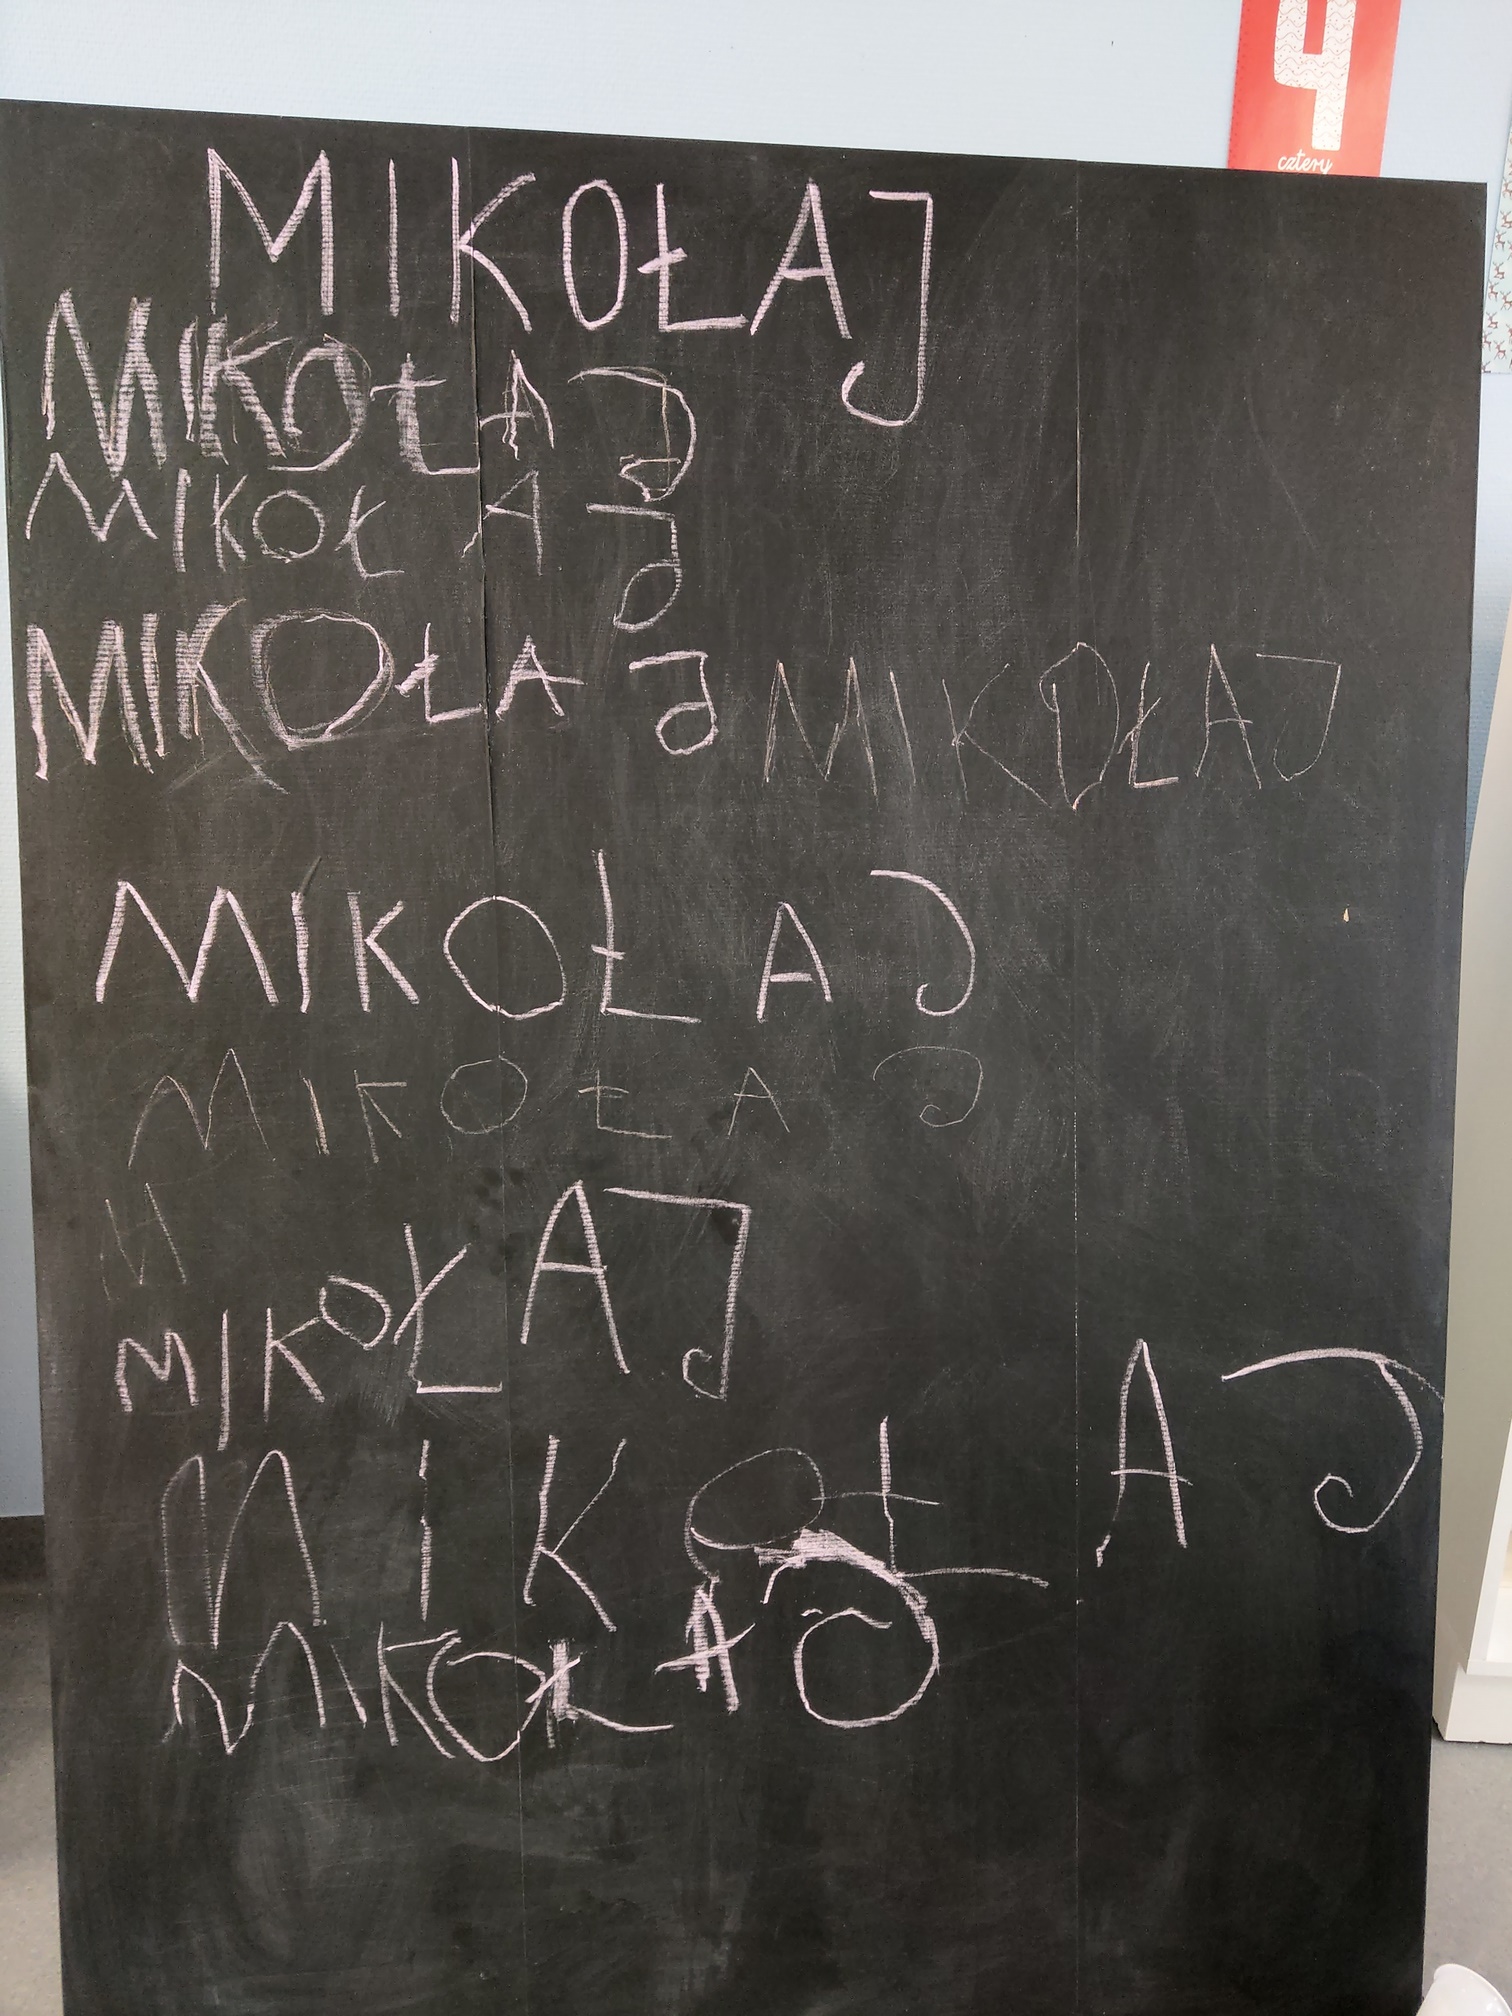 4
cztery
MIKOŁAJ
MIKOŁAJ
MIKOŁAJ
MIKOŁAJ MIKOŁAJ
MIKOŁAJ
MIKOŁAJ
M
MIKOŁAJ
MIKOŁAJ
MIKOŁAJ